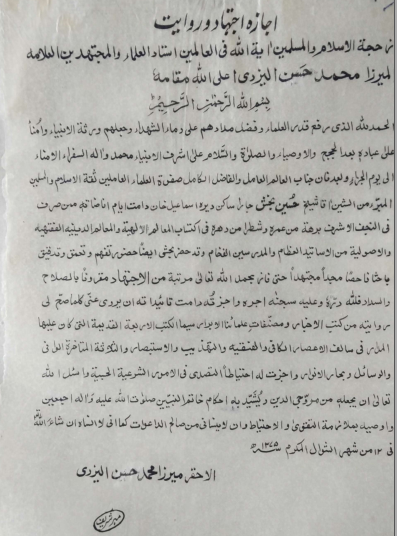 اجازه اجتهاد و روایت
از حجة الاسلام والمسلمین آیة الله فی العالمین استاد العلماء والمجتهدین العلامه
المیرزا محمد حسن الیزدی اعلی الله مقامه
بسم الله الرحمن الرحیم
الحمد لله الذی رفع قدر العلماء وفضل مدادهم علی دماء الشهداء وجعلهم ورثة الانبیاء وأمناً
علی عباده بعد الحجج والاوصیاء والصلوٰة والسّلام علی اشرف الانبیاء محمد وآله السفراء الامناء
الی یوم الجزاء وبعد فان جناب العالم العامل والفاضل الکامل صفوة العلماء العاملین ثقة الاسلام والمسلمین
المبرء من الشین آقا شیخ حسین بخش جارا ساکن دیره اسماعیل خان دامت ایام افاضاته ممن صرف
فی النجف الاشرف برهة من عمره وشطراً من دهره فی اکتساب المعالم الالهیة والمعالم الدینیه الفقهیه
والاصولیة من الاساتید العظام والمدرسین الفخام وقد حضر بحثی ایضاً حضور تفهم وتعمق وتدقیق
باحثاً فاحصاً مجداً مجتهداً حتی فاز بحمد الله تعالی مرتبة من الاجتهاد مقروناً بالصلاح
والسداد فلله درّه وعلیه سبحانه اجره واجزت له دامت تائیداته ان یروی عنی کلما صح لی
روایته من کتب الاخبار ومصنفات علمائنا الابرار سیما الکتب الاربعة القدیمة التی کان علیها
المدار فی سالف الاعصار الکافی والفقیه والتهذیب والاستبصار والثلاثة المتاخرة الوافی
والوسائل وبحار الانوار واجزت له احتیاطاً التصدی فی الامور الشرعیة الحسبیة واسئل الله
تعالی ان یجعله من مروجی الدین و یُشیّد به احکام خاتم النبیین صلوات الله علیه وآله اجمعین
واوصیه بملازمة التقوی والاحتیاط وان لاینسانی من صالح الدعوات کما انی لا انساه ان شاء الله
فی ۱۲ من شهر الشوال المکرم ۱۳۷۵ سنه
الاحقر میرزا محمد حسن الیزدی